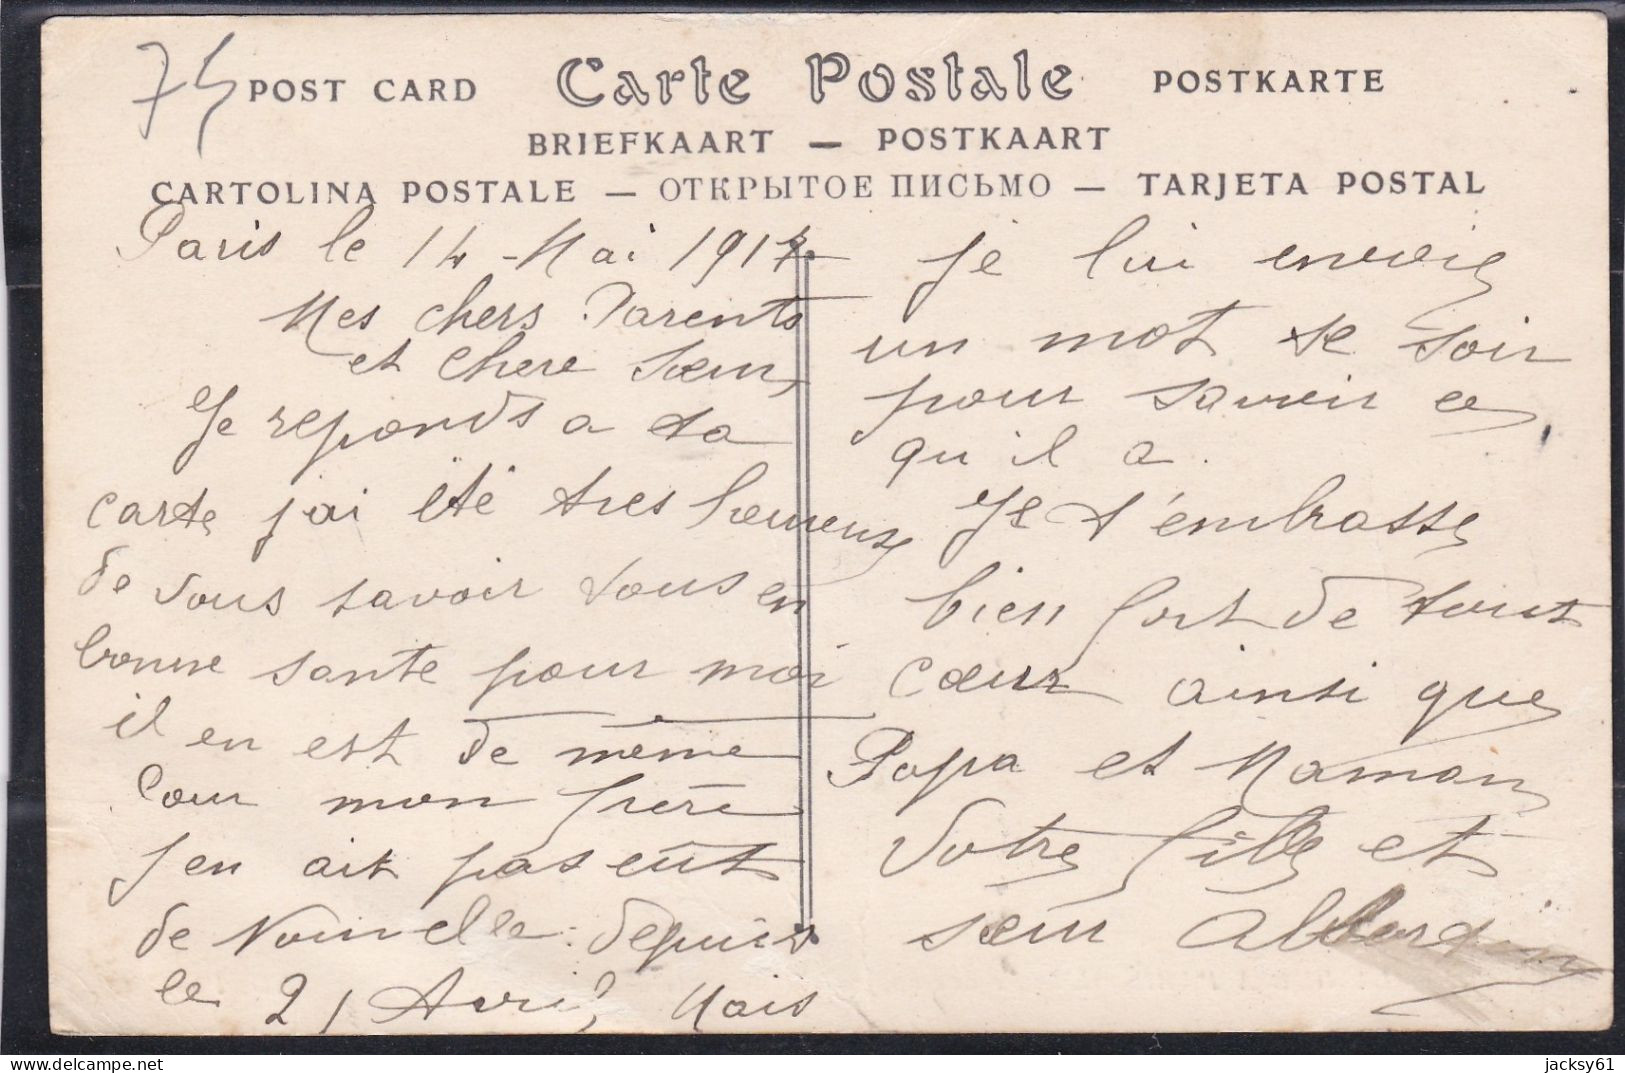 75
POST CARD Carte Postale POSTKARTE
BRIEFKAART — POSTKAART
CARTOLINA POSTALE — ОТКРЫТОЕ ПИСЬМО — TARJETA POSTAL
Paris le 14 Mai 1917
Mes chers Parents
et chere Sœur,
Je reponds a ta
carte j'ai été tres heureuse
de vous savoir tous en
bonne sante pour moi
il en est de même
Pour mon frère
j'en ait pas eut
de Nouvelle depuis
le 21 Avril Mais
je lui envoie
un mot se soir
pour savoir ce
qu'il a.
Je t'embrasse
bien fort de tout
cœur ainsi que
Papa et Maman
Votre fille et
sœur
jacksy61